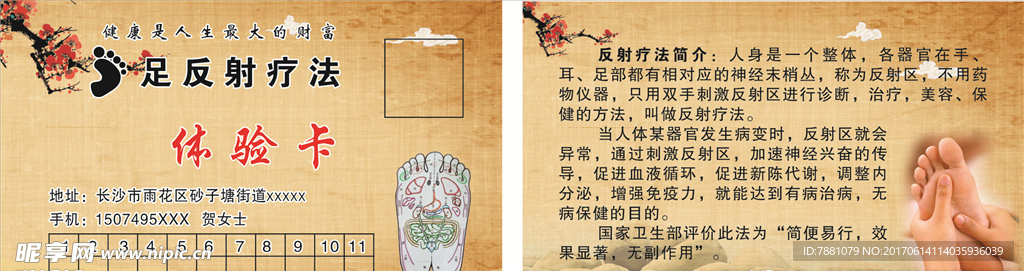 健康是人生最大的财富
足反射疗法
体验卡
地址：长沙市雨花区砂子塘街道xxxxx
手机：1507495XXX  贺女士
1 2 3 4 5 6 7 8 9 10 11
昵享网 www.nipic.cn
反射疗法简介：人身是一个整体，各器官在手、
耳、足部都有相对应的神经末梢丛，称为反射区，不用药
物仪器，只用双手刺激反射区进行诊断，治疗，美容、保
健的方法，叫做反射疗法。
当人体某器官发生病变时，反射区就会
异常，通过刺激反射区，加速神经兴奋的传
导，促进血液循环，促进新陈代谢，调整内
分泌，增强免疫力，就能达到有病治病，无
病保健的目的。
国家卫生部评价此法为“简便易行，效
果显著，无副作用”。
ID:7881079 NO:20170614114035936039